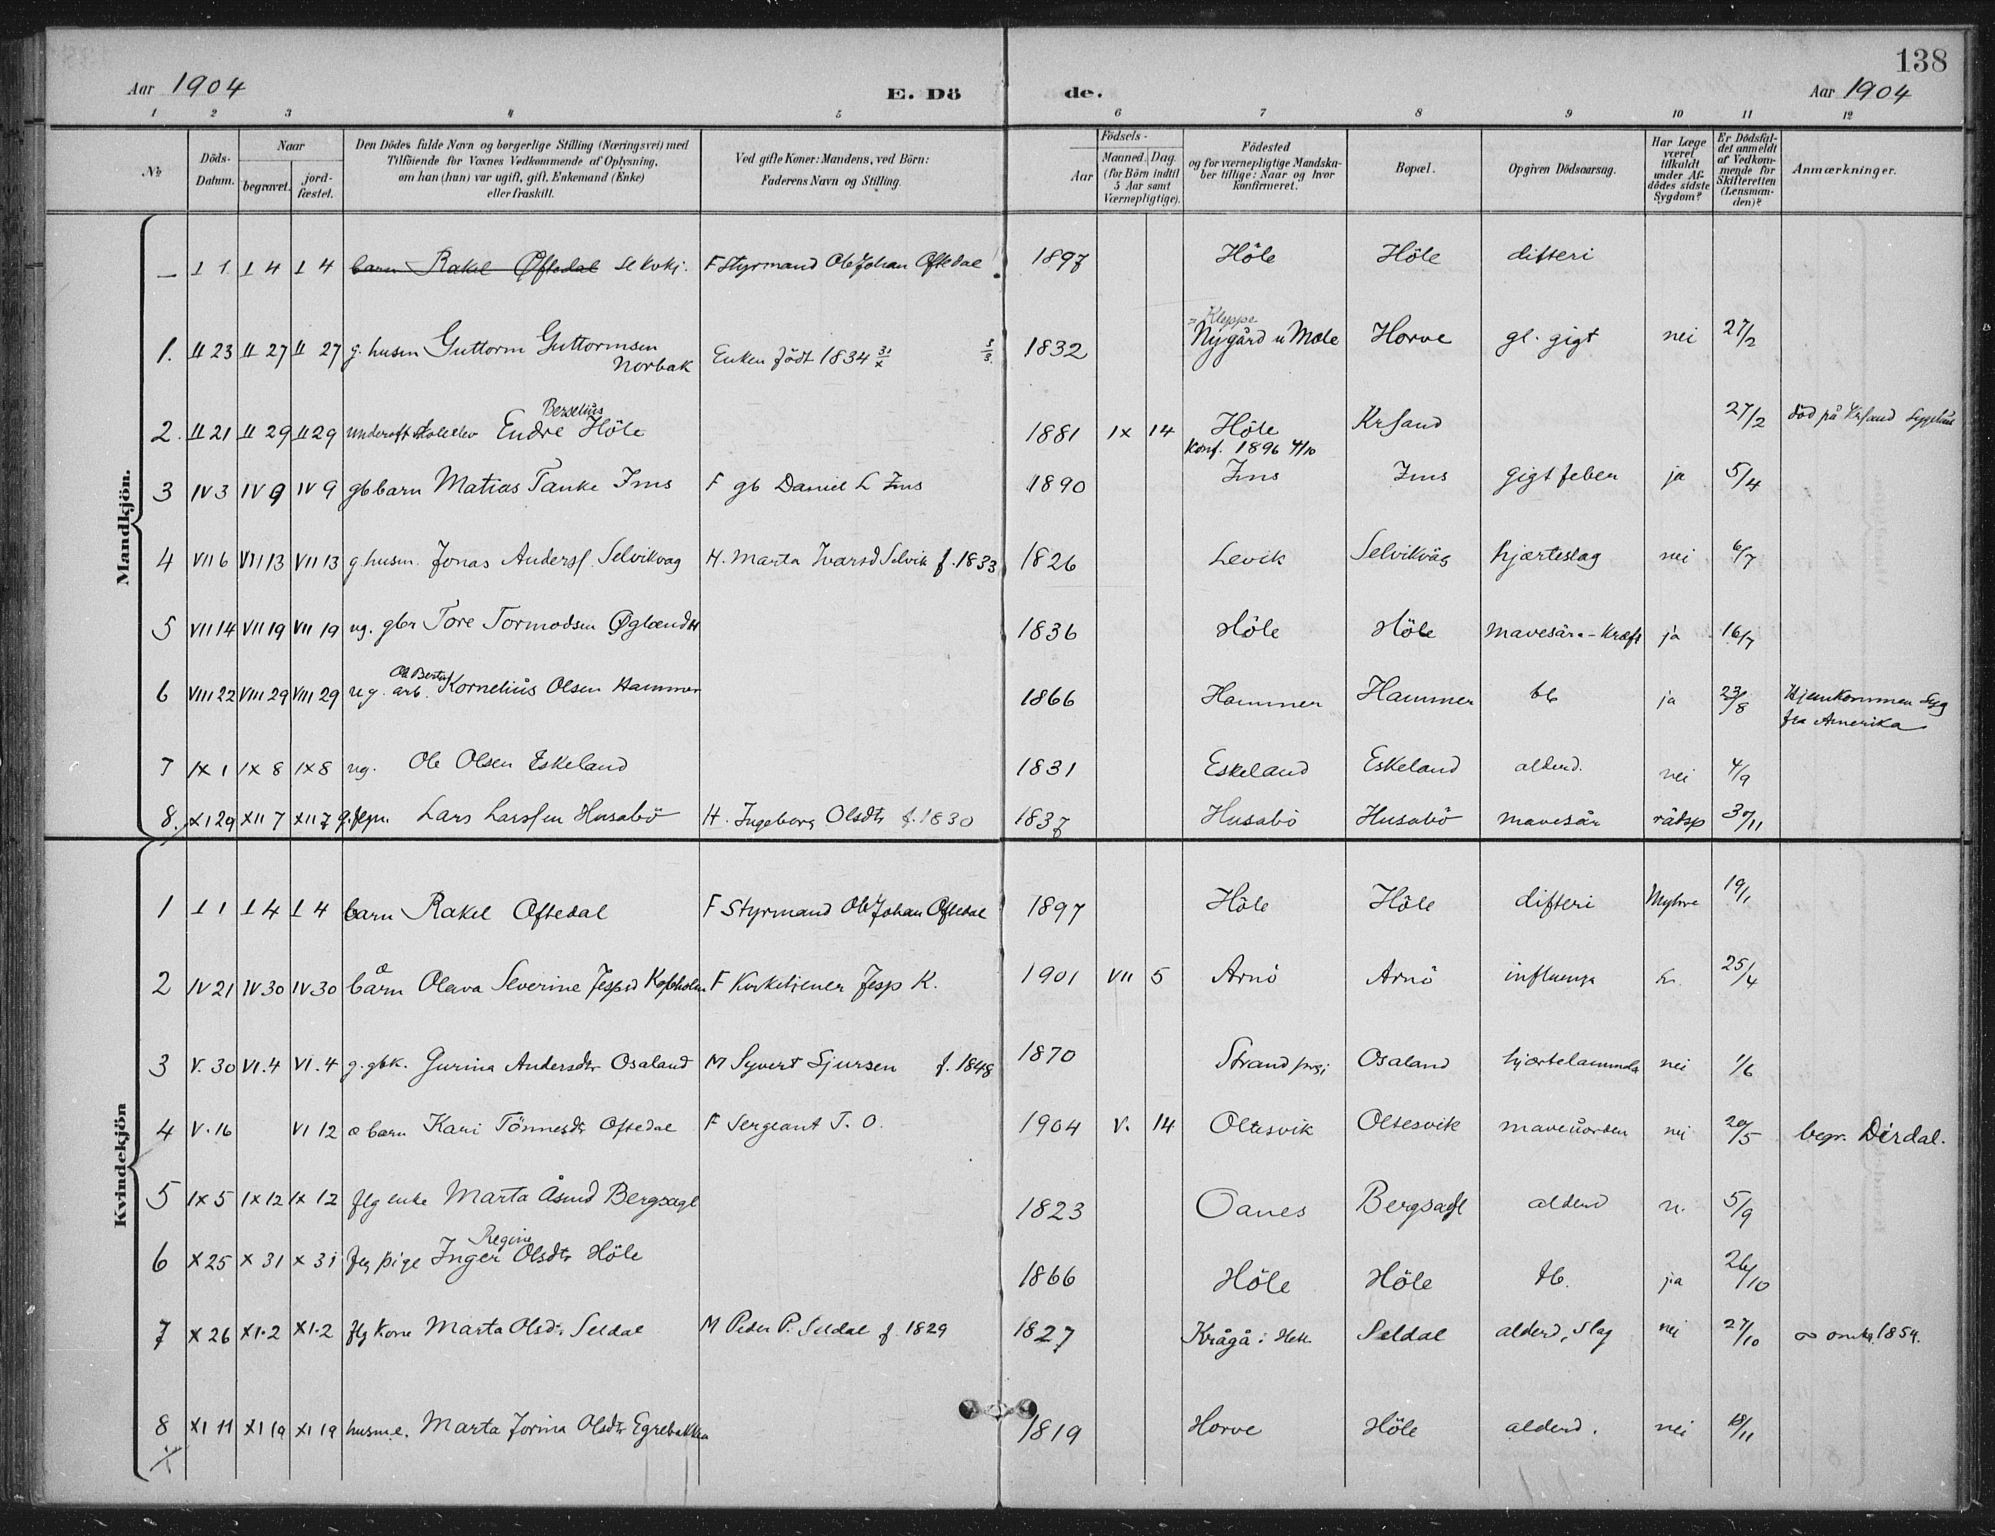 138
Aar 1904
E. Dö de.
Aar 1904
1 2 3 4 5 6 7 8 9 10 11 12
№ Döds-Datum. Naar begravet. jordfæstet. Den Dödes fulde Navn og borgerlige Stilling (Næringsvei) med Tilföiende for Voxnes Vedkommende af Oplysning, om han (hun) var ugift, gift, Enkemand (Enke) eller fraskilt. Ved gifte Koner: Mandens, ved Börn: Faderens Navn og Stilling. Födsels- Aar Maaned. Dag. (for Börn indtil 5 Aar samt Værnepligtige). Födested og for værnepligtige Mandskaber tillige: Naar og hvor konfirmeret. Bopæl. Opgiven Dödsaarsag. Har Læge været tilkaldt under Afdödes sidste Sygdom? Er Dödsfaldet anmeldt af Vedkommende for Skifteretten (Lensmanden)? Anmærkninger.
Mandkjön.
— I 1 I 4 I 4 barn Rakel Oftedal se kvkj. F Styrmand Ole Johan Oftedal 1897 Höle Höle difteri
Kleppe
1. II 23 II 27 II 27 g. husm Guttorm Guttormsen Enken födt 1834 1832 Nygård u Mæle Horve gl. gigt nei 27/2
Norbak
Berselius
2. II 21 II 29 II 29 Endre Höle 1881 IX 14 Höle Krsand 27/2 död på Krsand Sygehus
Konf. 1896 4/10
3 IV 3 IV 9 IV 9 gb barn Matias Tanke Ims F gb Daniel L Ims 1890 Ims Ims gigtfeber ja 5/4
4 VII 6 VII 13 VII 13 g. husm. Jonas Anderss. Selvikvag H. Marta Ivarsd Selvik f. 1833 1826 Levik Selvikvåg hjærteslag nei 6/7
5 VII 14 VII 19 VII 19 ug. gbr Tore Tormodsen 1836 Höle Höle mavesår - Kræft ja 16/7
6 VIII 22 VIII 29 VIII 29 ug. arb. Kornelius Olsen Hammer 1866 Hammer Hammer tb ja 23/8 Hjemkommen syg
fra Amerika
7 IX 1 IX 8 IX 8 ug. Ole Olsen Eskeland 1831 Eskeland Eskeland alderd. nei 4/9
8. XI 29 XII 7 XII 7 Lars Larssen Husabö H. Ingeborg Olsdtr f. 1830 1837 Husabö Husabö mavesår rådsp 30/11
Kvindekjön
1 I 1 I 4 I 4 barn Rakel Oftedal F Styrmand Ole Johan Oftedal 1897 Höle Höle difteri Myhre 19/1
2 IV 21 IV 30 IV 30 barn Olava Severine Jespd F Kirketjener Jesp K. 1901 VII 5 Arnö Arnö influenza 25/4
3 V. 30 VI. 4 VI. 4 g. gbk. Gurina Andersdtr Osaland M Syvert Sjursen f. 1848 1870 Strand prgj Osaland nei 1/6
4 V. 16 VI 12 æ barn Kari Tönnesdtr Oftedal F Sergeant T. O. 1904 V. 14 Oltesvik Oltesvik maveuorden nei 20/5 begr. Dirdal.
5 IX 5 IX 12 IX 12 flg enke Marta Åsmd Bergsagl 1823 Oanes Bergsagl alderd n. 5/9
Regine
6 X 25 X 31 X 31 flg pige Inger Olsdtr Höle 1866 Höle Höle tb. ja 26/10
7 X 26 XI. 2 XI. 2 flg kone Marta Olsd. Seldal M Peder P. Seldal f 1829 1827 Krågå i Hett. Seldal alderd, slag nei 27/10 ∞ omkr. 1854.
8 XI 11 XI 19 XI 19 Marta Jorina Olsdtr Egrebakka 1819 Horve Höle alderd. nei 18/11